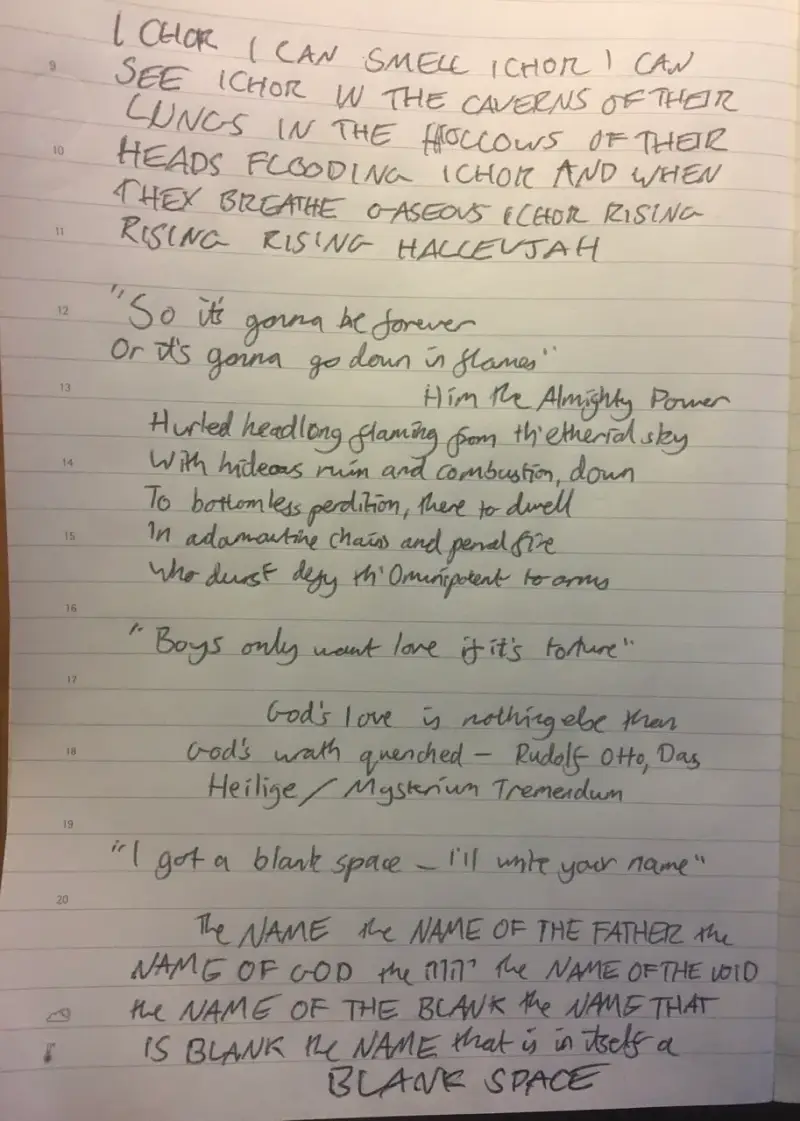 ICHOR I CAN SMELL ICHOR I CAN
9
SEE ICHOR IN THE CAVERNS OF THEIR
LUNGS IN THE HOLLOWS OF THEIR
10
HEADS FLOODING ICHOR AND WHEN
THEY BREATHE GASEOUS ICHOR RISING
11
RISING RISING HALLELUJAH
12
"So it's gonna be forever
Or it's gonna go down in flames"
13
Him the Almighty Power
Hurled headlong flaming from th'etherial sky
14
With hideous ruin and combustion, down
To bottomless perdition, there to dwell
15
In adamantine chains and penal fire
Who durst defy th'Omnipotent to arms
16
"Boys only want love if it's torture"
17
God's love is nothing else than
18
God's wrath quenched – Rudolf Otto, Das
Heilige / Mysterium Tremendum
19
"I got a blank space – I'll write your name"
20
The NAME the NAME OF THE FATHER the
NAME OF GOD the יהוה the NAME OF THE VOID
the NAME OF THE BLANK the NAME THAT
IS BLANK the NAME that is in itself a
BLANK SPACE